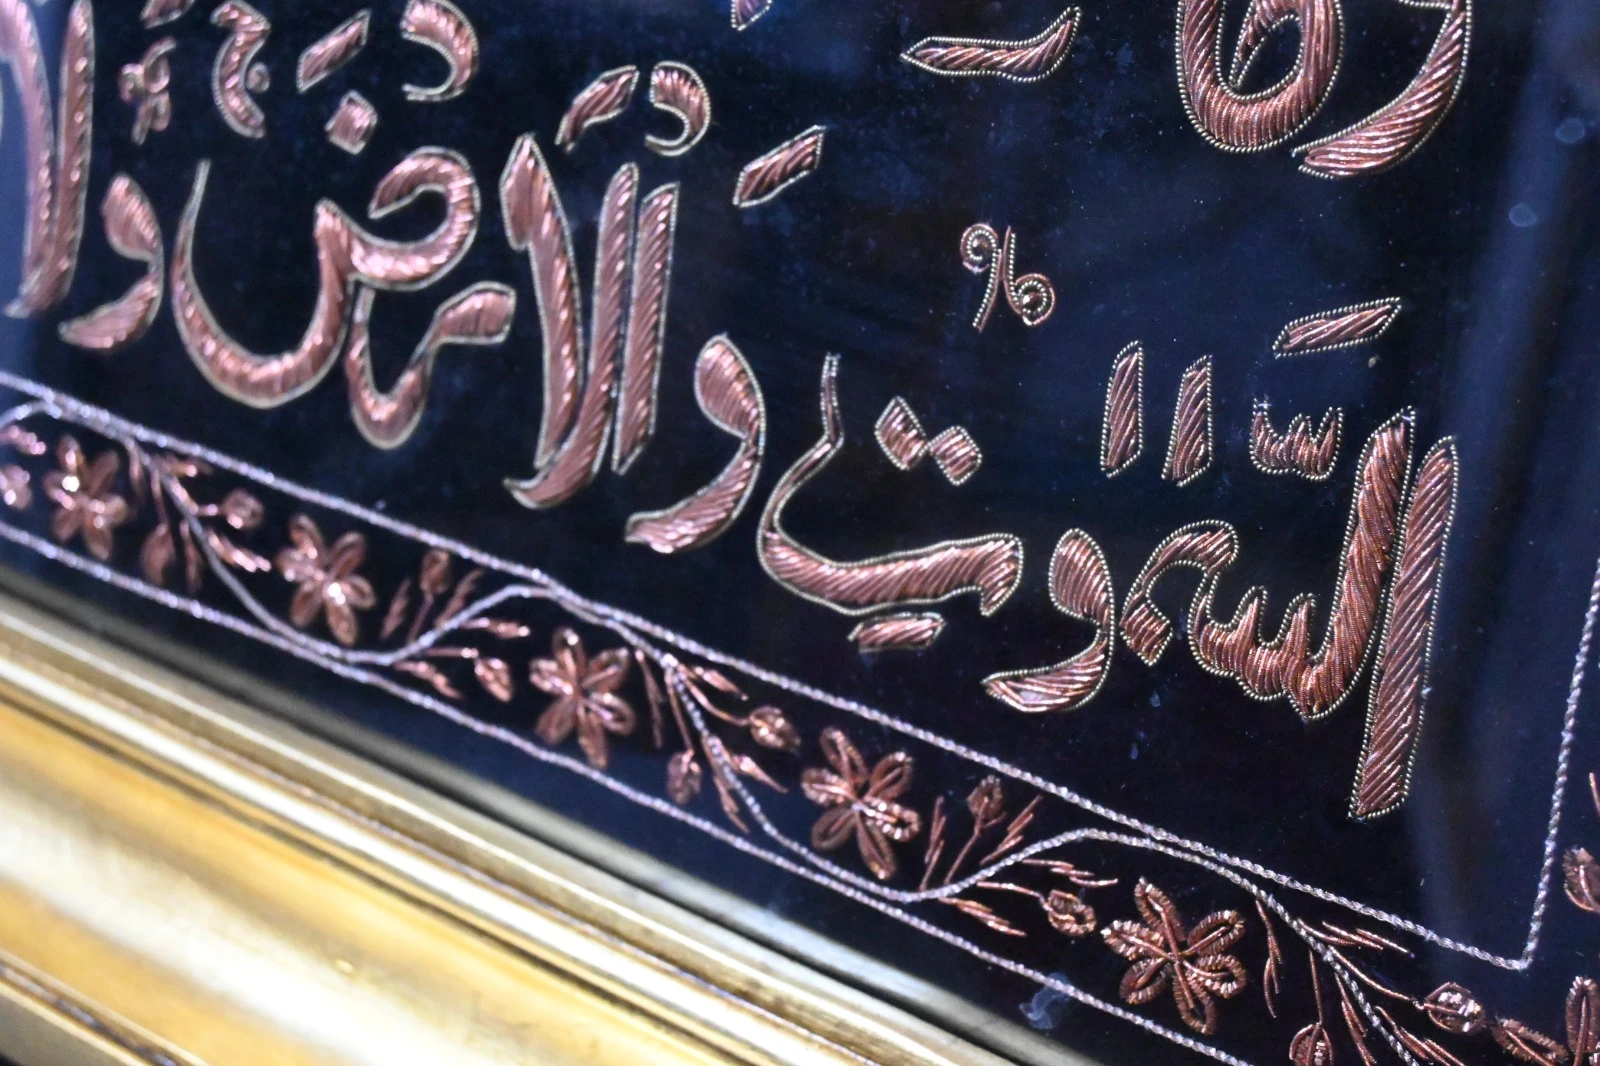 السَّمٰوٰتِ وَالْاَرْضَ وَلَا